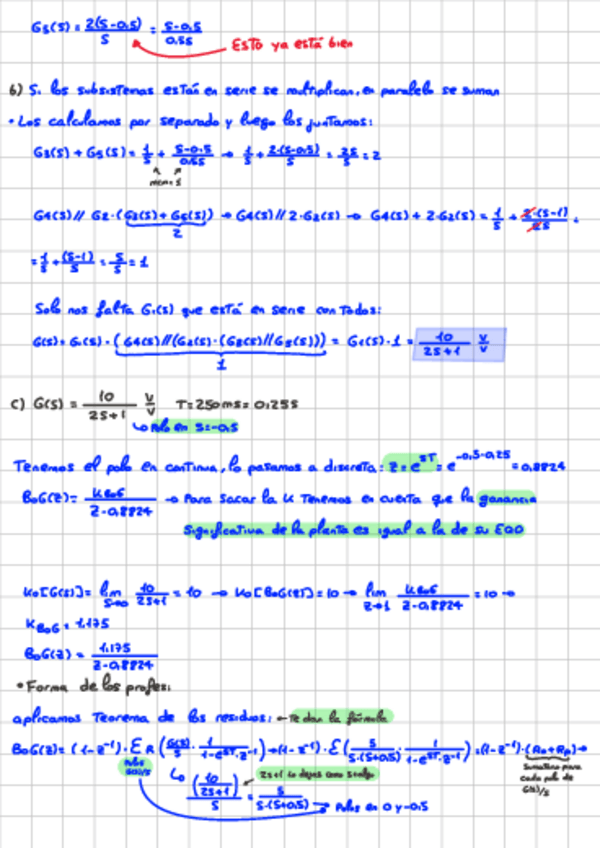 G5(s) = 2(s-0.5)/s = s-0.5/0.5s
Esto ya está bien
b) Si los subsistemas están en serie se multiplican, en paralelo se suman
• Los calculamos por separado y luego los juntamos:
G3(s) + G5(s) = 1/s + s-0.5/0.5s → 1/s + 2·(s-0.5)/s = 2s/s = 2
mcm = s
G4(s) // G2·(G3(s) + G5(s)) → G4(s) // 2·G2(s) → G4(s) + 2·G2(s) = 1/s + 2·(s-1)/2s =
2
= 1/s + (s-1)/s = s/s = 1
Solo nos falta G1(s) que está en serie con todos:
G(s) = G1(s)·(G4(s)//(G2(s)·(G3(s)//G5(s)))) = G1(s)·1 = 10/2s+1 V/V
1
c) G(s) = 10/2s+1 V/V T = 250ms = 0,25s
↳ Polo en s = -0,5
Tenemos el polo en continua, lo pasamos a discreta: z = e^sT = e^-0,5·0,25 = 0,8824
BoG(z) = KBoG/z-0,8824 → Para sacar la K tenemos en cuenta que la ganancia
significativa de la planta es igual a la de su EQD
K0[G(s)] = lim s→0 10/2s+1 = 10 → K0[BoG(z)] = 10 → lim z→1 KBoG/z-0,8824 = 10 →
KBoG = 1,175
BoG(z) = 1,175/z-0,8824
• Forma de los profes:
aplicamos Teorema de los residuos: ← Te dan la fórmula
BoG(z) = (1-z^-1)·Σ R(G(s)/s · 1/1-e^sT·z^-1) → (1-z^-1)·Σ(5/s·(s+0,5) · 1/1-e^sT·z^-1) = (1-z^-1)·(R0+Rp) →
Polos G(s)/s
↳ (10/2s+1)/s = 5/s·(s+0,5) → Polos en 0 y -0,5
2s+1 lo dejas como s+algo
Sumatorio para cada polo de G(s)/s